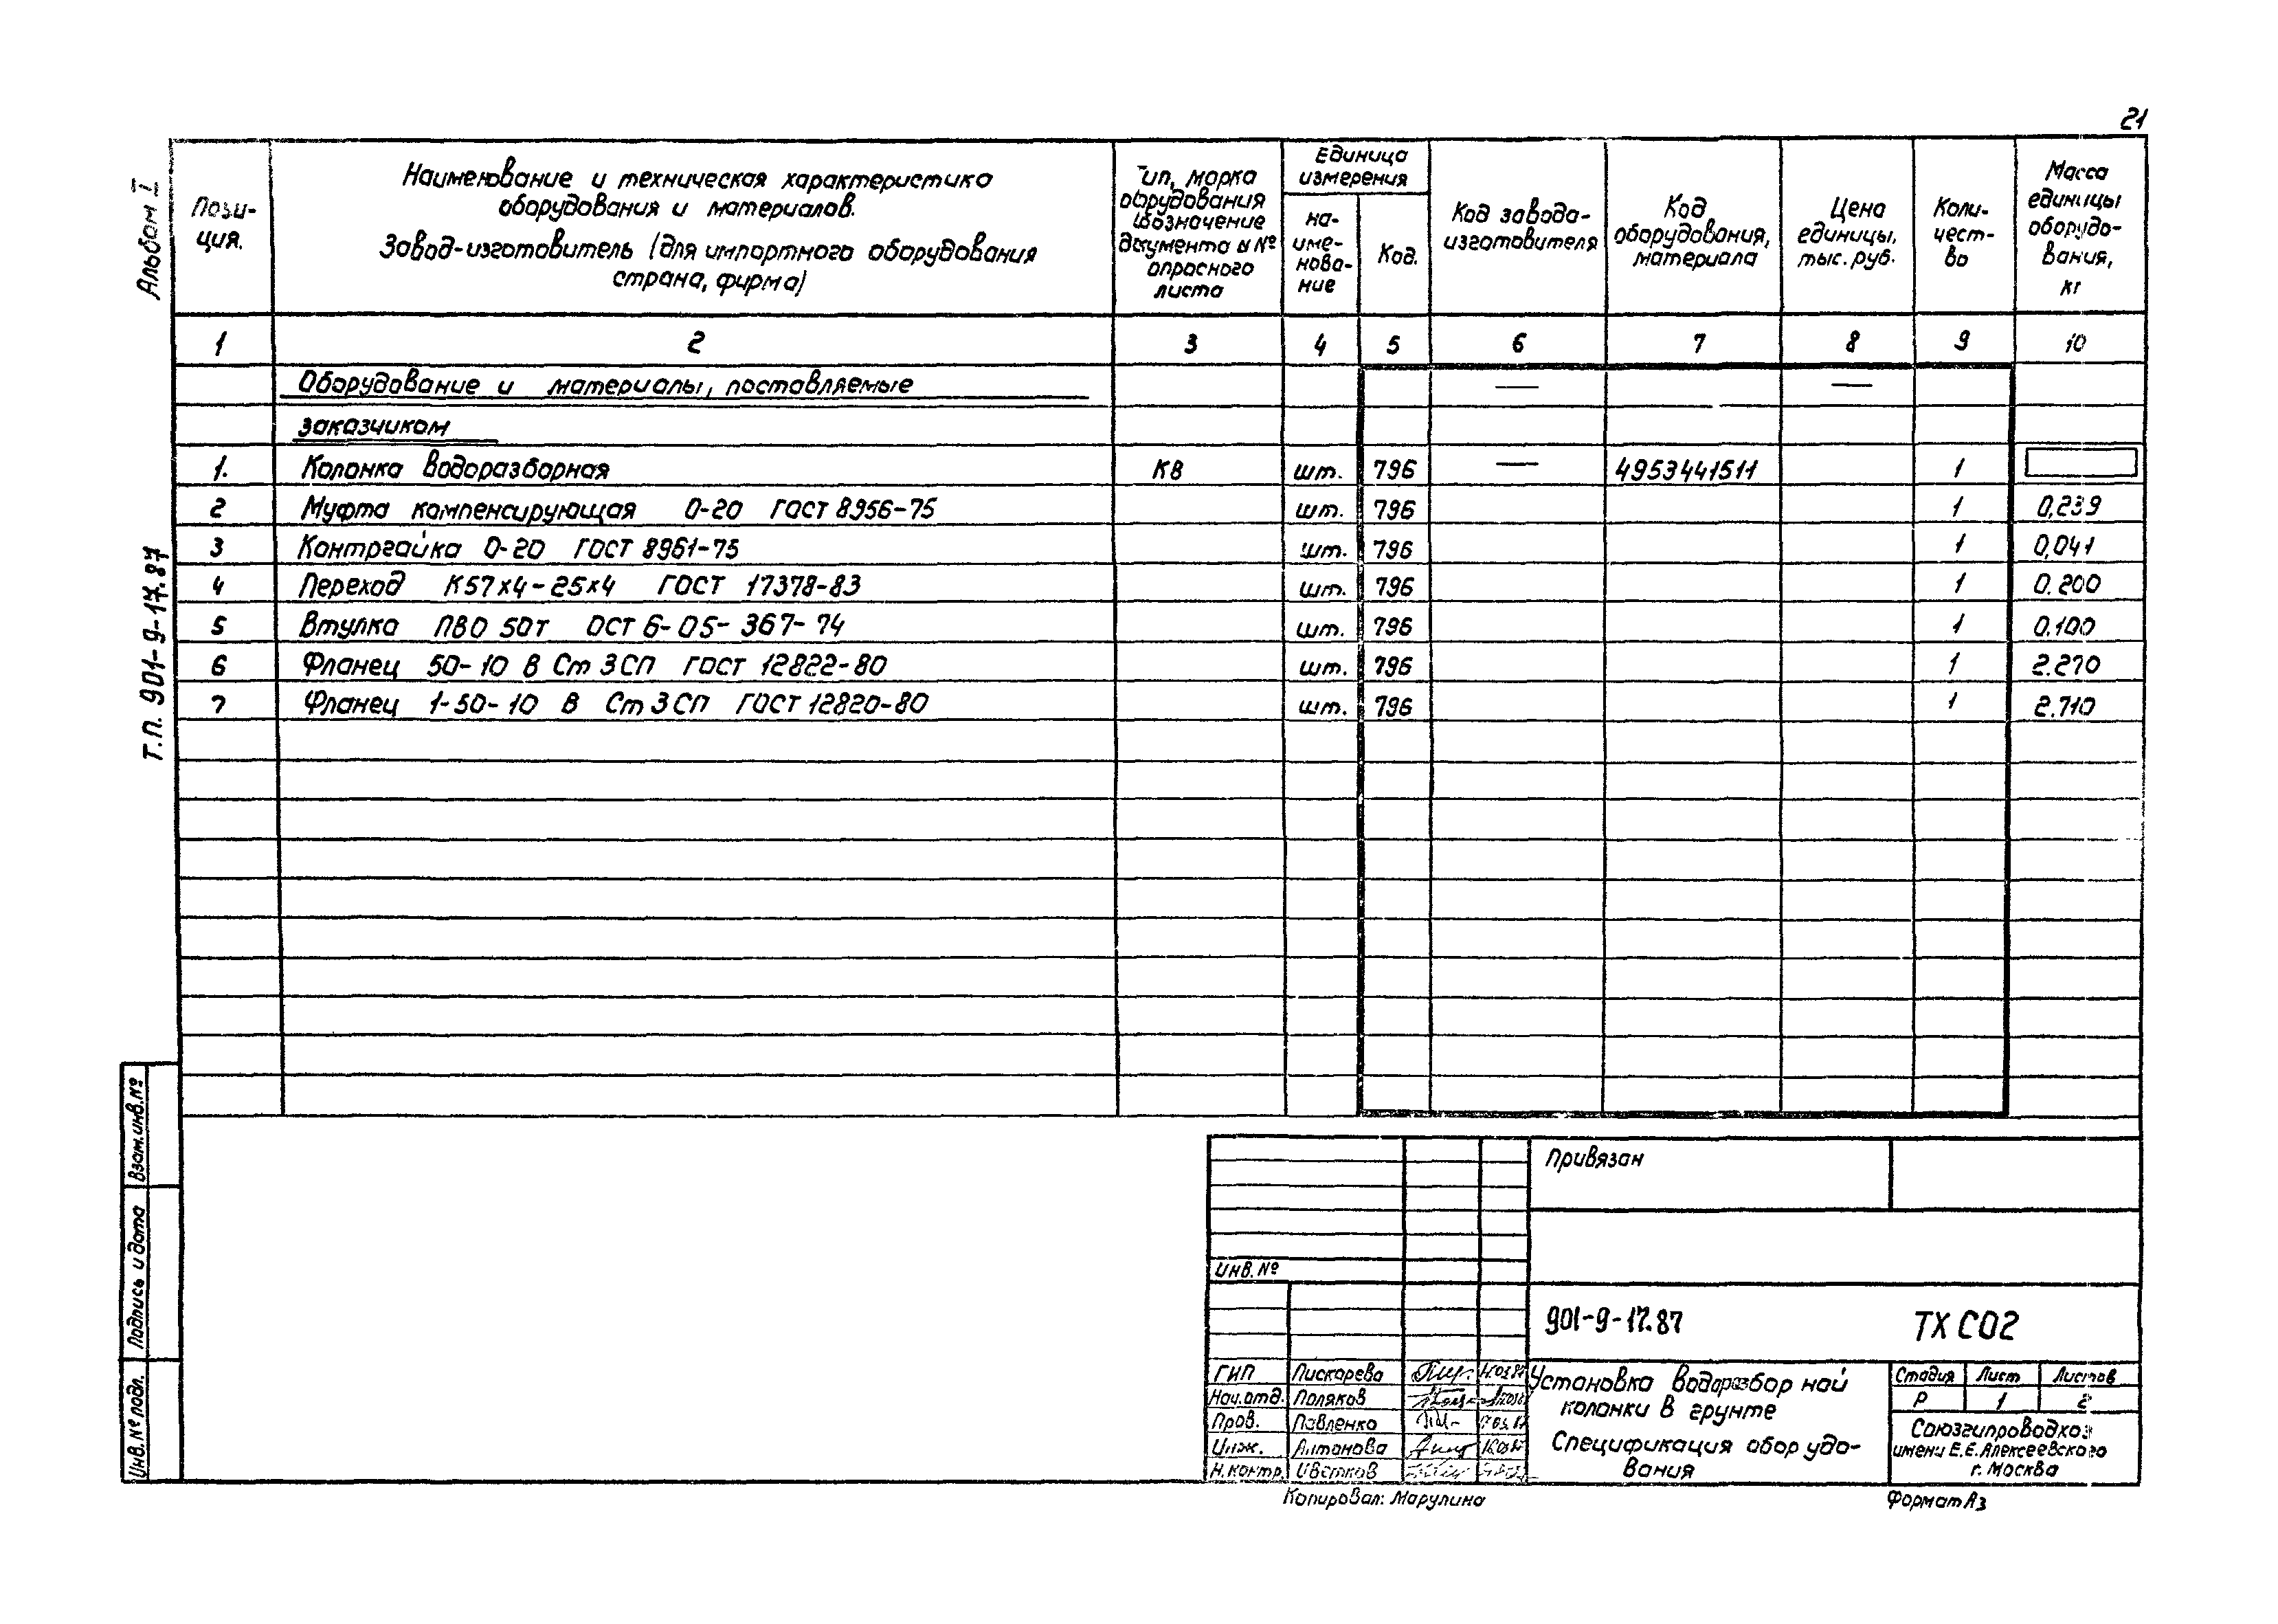 21
Альбом I
Т.П. 901-9-17.87
Пози-
ция.
Наименование и техническая характеристика
оборудования и материалов.
Завод-изготовитель (для импортного оборудования
страна, фирма)
Тип, марка
оборудования
(обозначение
документа и №
опросного
листа
Единица
измерения
на-
име-
нова-
ние
Код.
Код завода-
изготовителя
Код
оборудования,
материала
Цена
единицы,
тыс. руб.
Коли-
чест-
во
Масса
единицы
оборудо-
вания,
кг
1 2 3 4 5 6 7 8 9 10
Оборудование и материалы, поставляемые — —
заказчиком
1. Колонка водоразборная КВ шт. 796 — 4953441511 1
2 Муфта компенсирующая О-20 ГОСТ 8956-75 шт. 796 1 0,239
3 Контргайка О-20 ГОСТ 8961-75 шт. 796 1 0,041
4 Переход К57х4-25х4 ГОСТ 17378-83 шт. 796 1 0.200
5 Втулка ПВО 50т ОСТ 6-05-367-74 шт. 796 1 0.100
6 Фланец 50-10 В Ст 3 СП ГОСТ 12822-80 шт. 796 1 2.270
7 Фланец 1-50-10 В Ст 3 СП ГОСТ 12820-80 шт. 796 1 2.710
Взам.инв.№
Подпись и дата
Инв.№ подл.
Привязан
Инв.№
901-9-17.87 ТХ СО2
ГИП Пискарева
Нач.отд. Поляков
Пров. Павленко
Инж. Антонова
Н.контр. Цветков
Установка водоразборной
колонки в грунте
Спецификация оборудо-
вания
Стадия Лист Листов
Р 1 2
Союзгипроводхоз
имени Е.Е.Алексеевского
г. Москва
Копировал: Марулина Формат А3